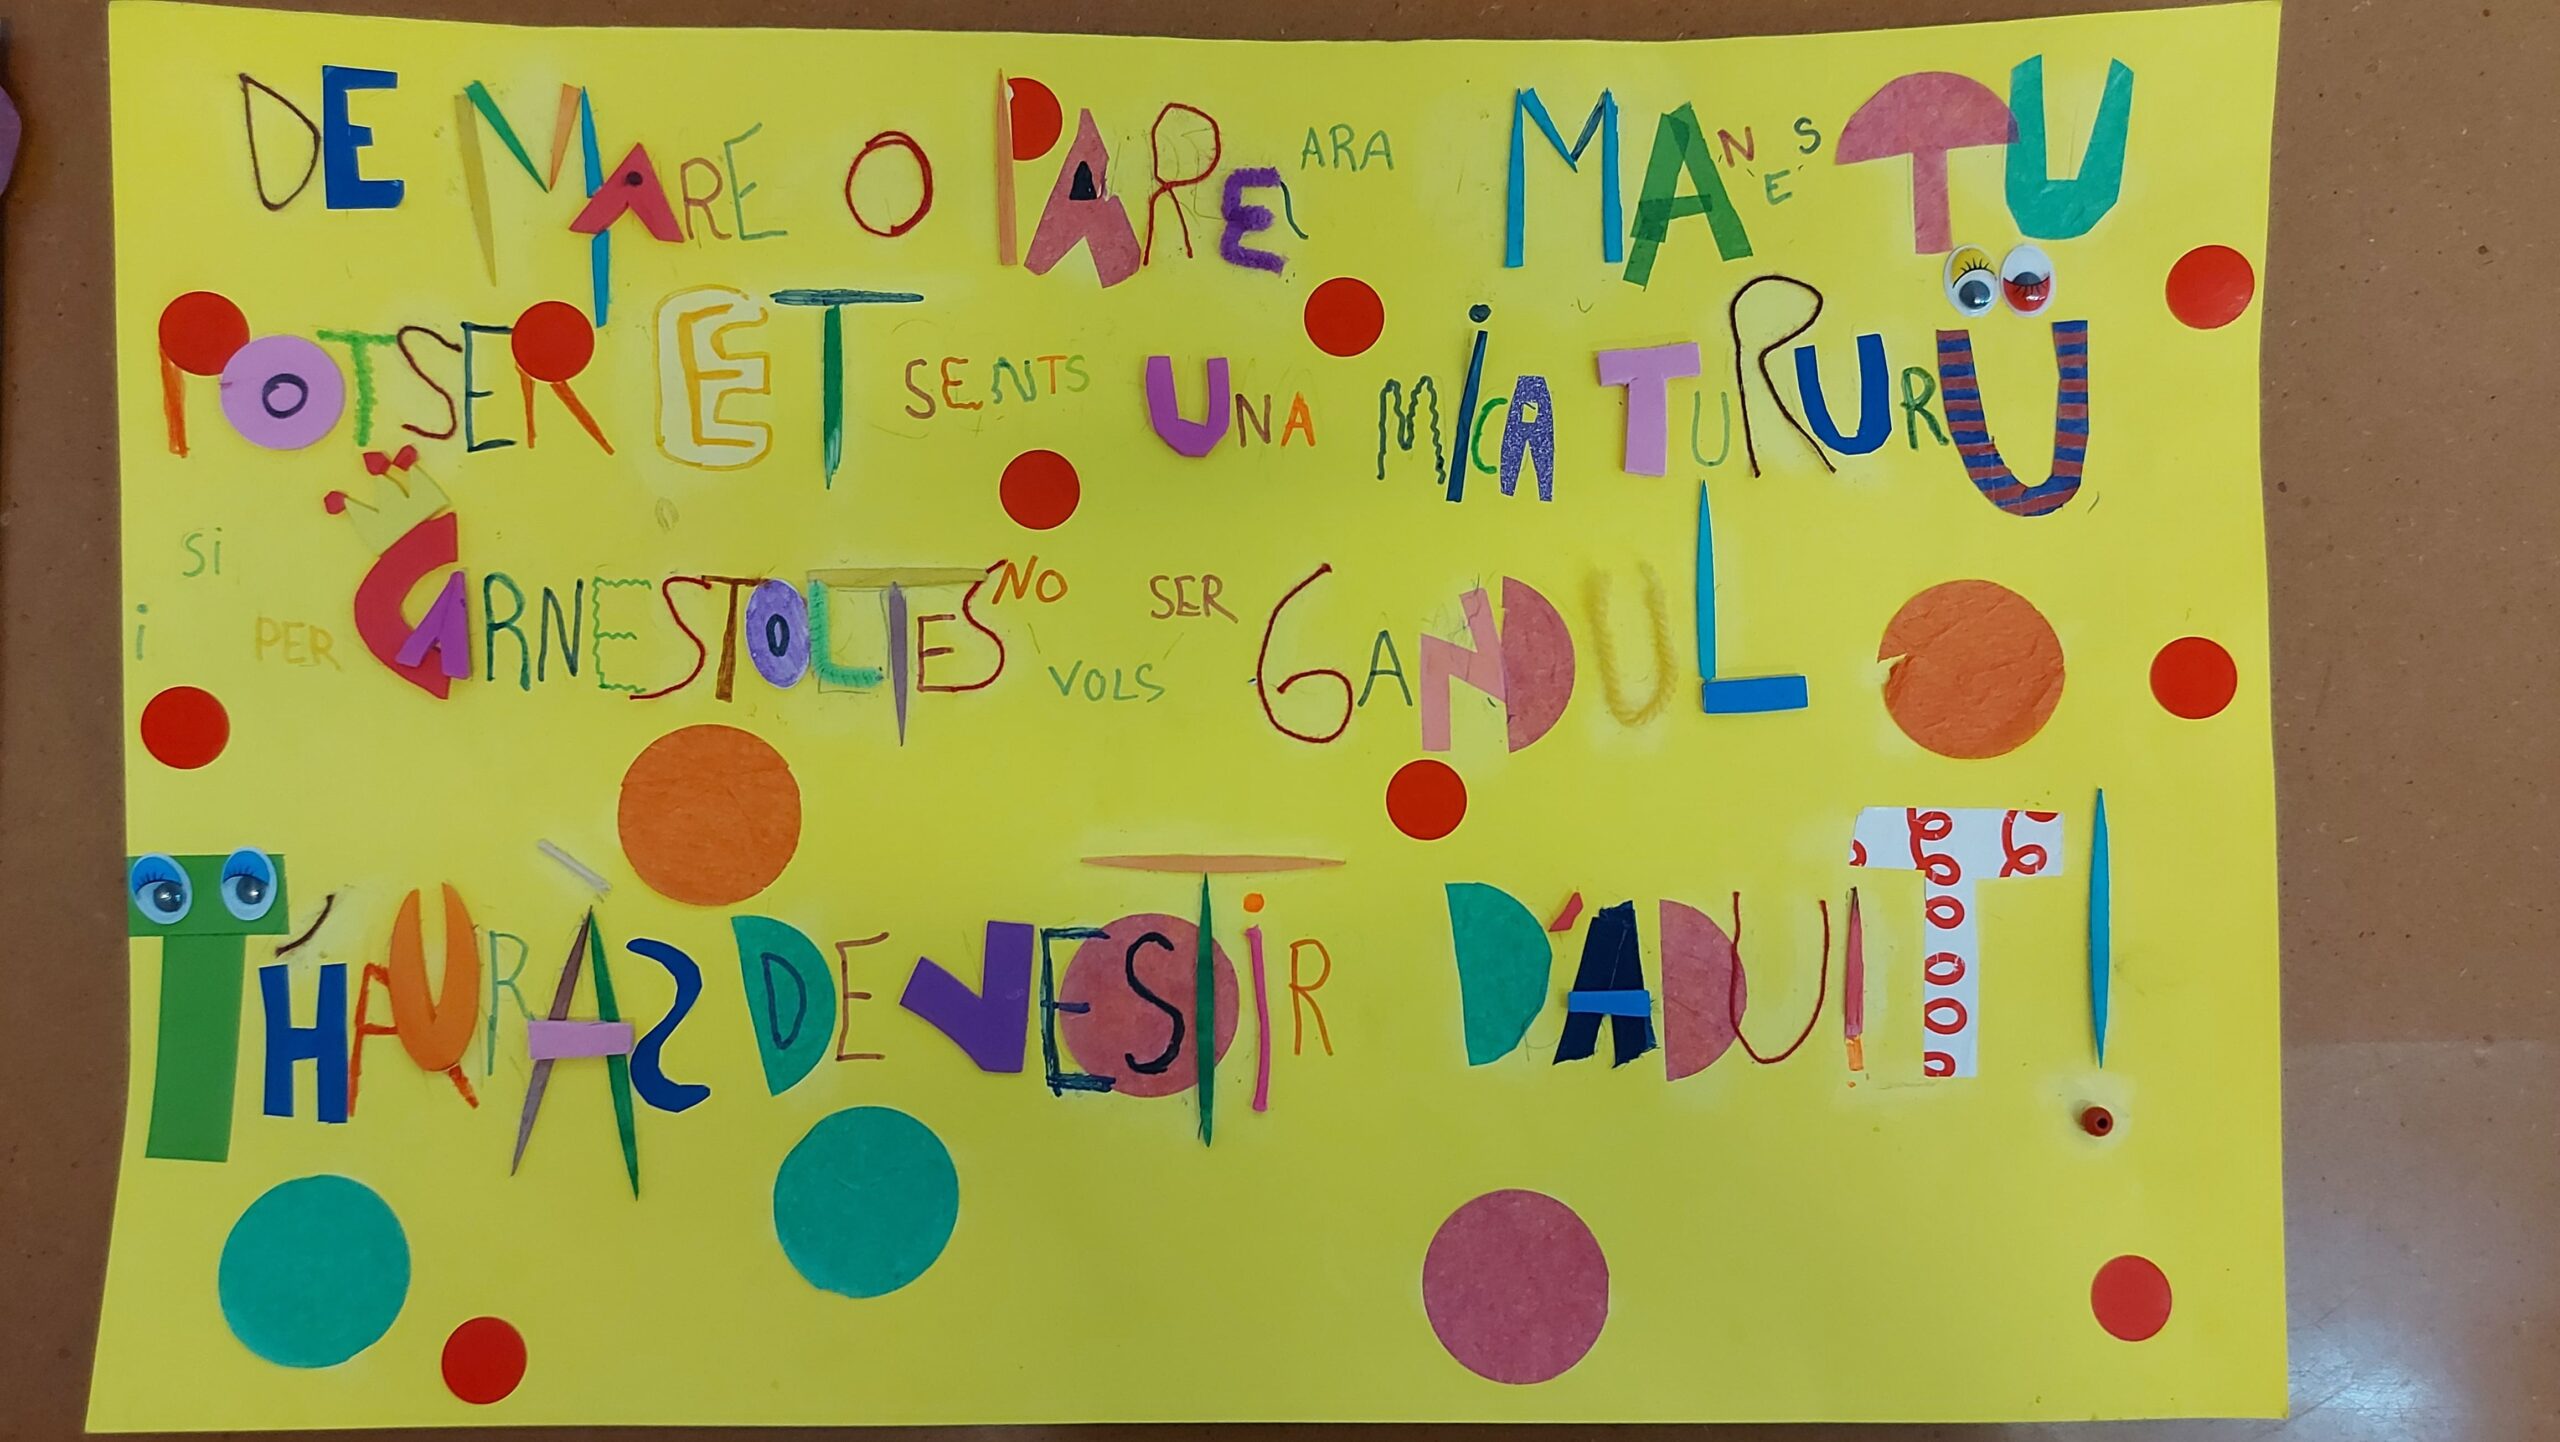 DE MARE O PARE, ARA MANES TU
POTSER ET SENTS UNA MICA TURURÚ,
I SI PER CARNESTOLTES NO VOLS SER GANDUL
T'HAURÀS DE VESTIR D'ADULT!